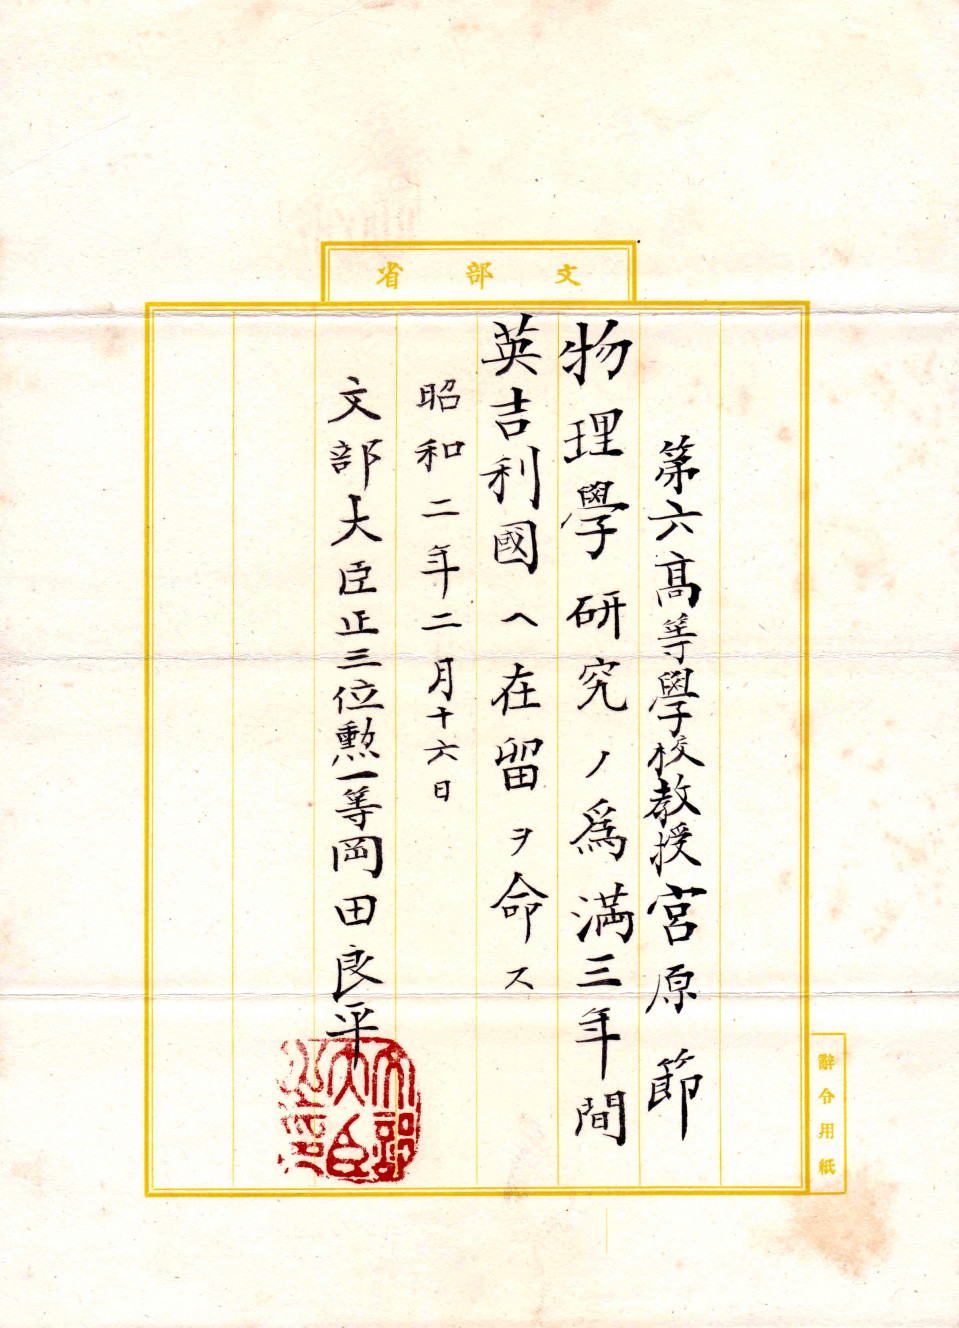 文部省
第六高等學校教授宮原節
物理學研究ノ爲満三年間
英吉利國ヘ在留ヲ命ス
昭和二年二月十六日
文部大臣正三位勲一等岡田良平
文部大臣之印
辭令用紙